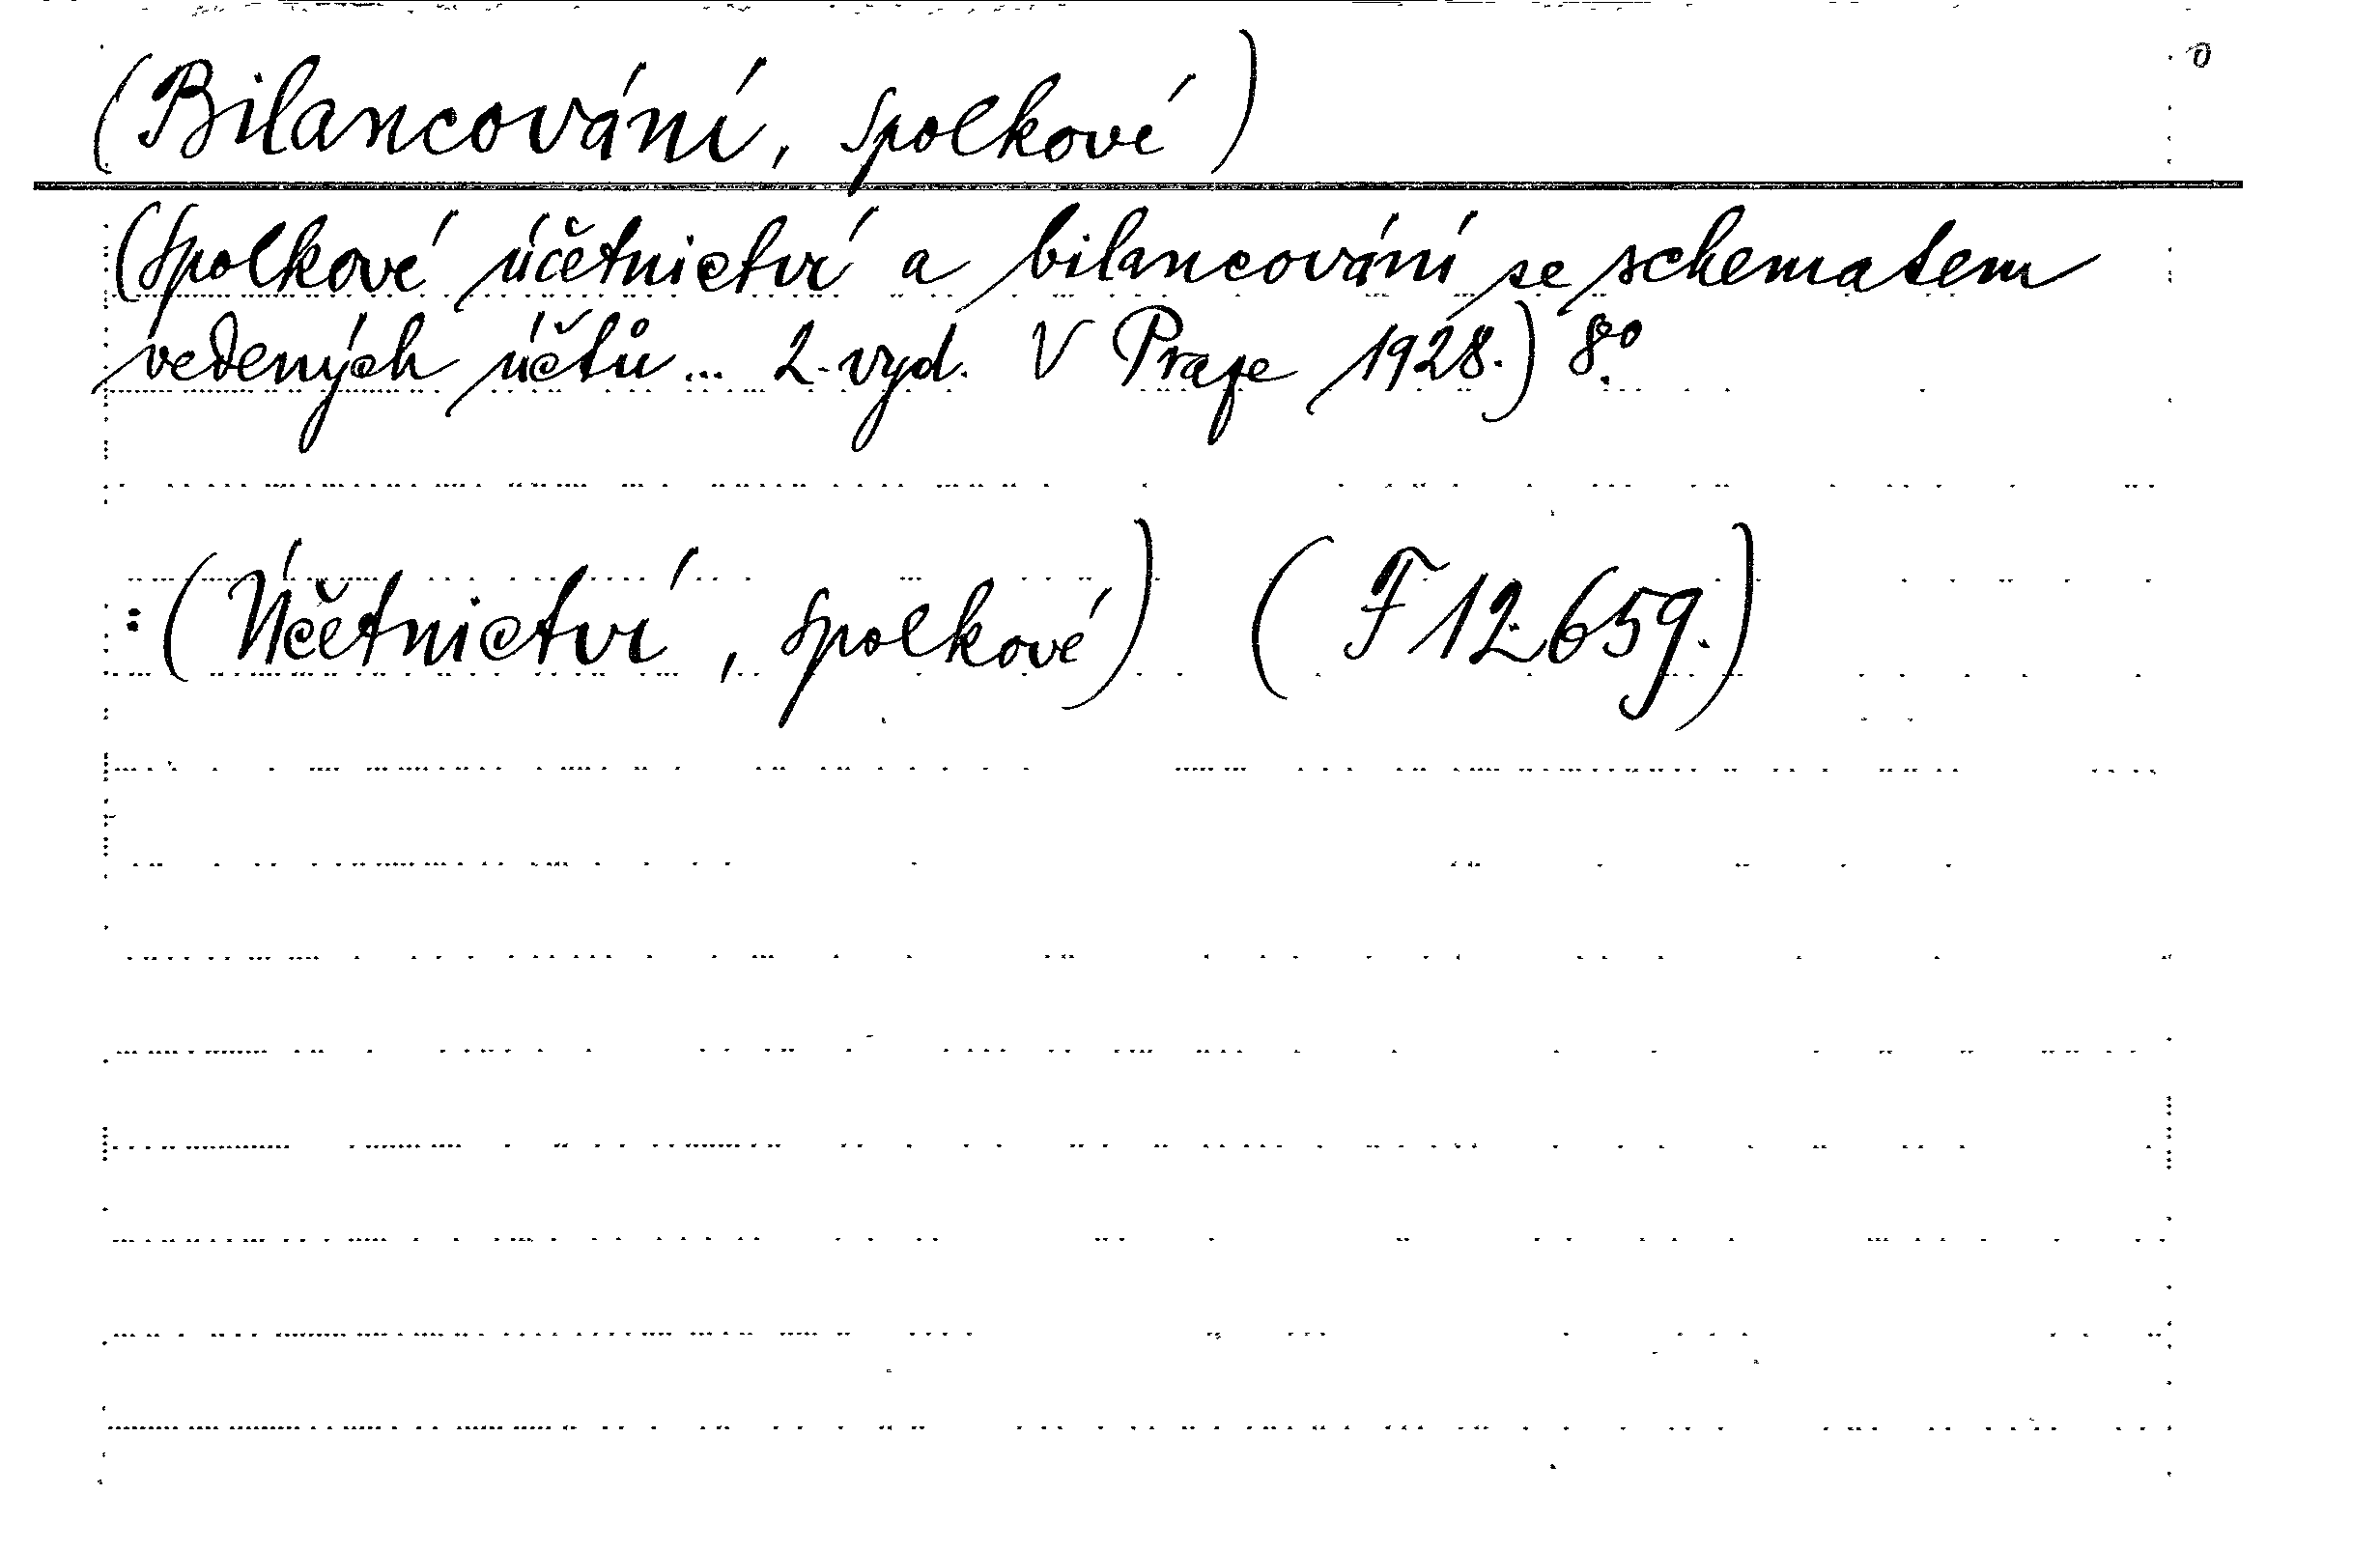 (Bilancování, spolkové)
(Spolkové účetnictví a bilancování se schematem
vedených účtů... 2. vyd. V Praze 1928.) 8º.
: (Účetnictví, spolkové) (F 12.659.)